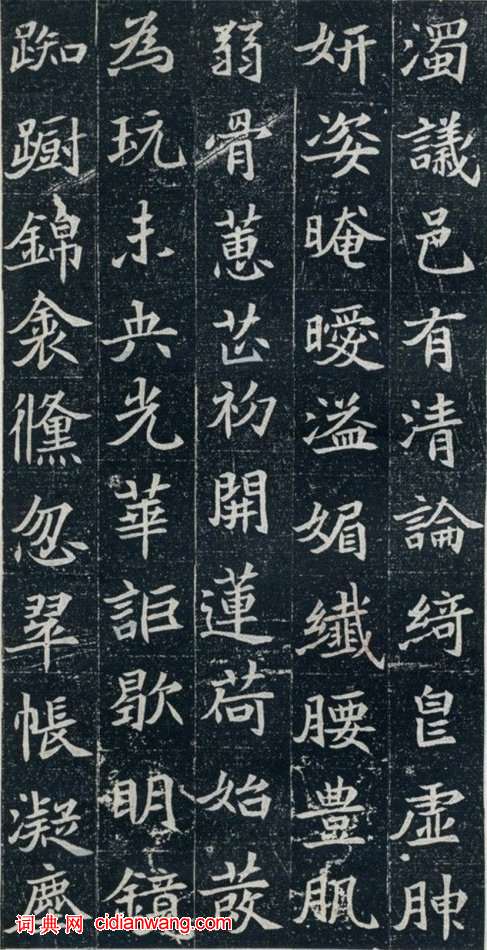 濁議邑有清論綺皃虛胂
妍姿晻曖溢媚纖腰豊肌
弱骨蕙芷初開蓮荷始
為玩未央光華詎歇明鏡
踟躕錦衾儵忽翠帳凝塵
词典网 cidianwang.com